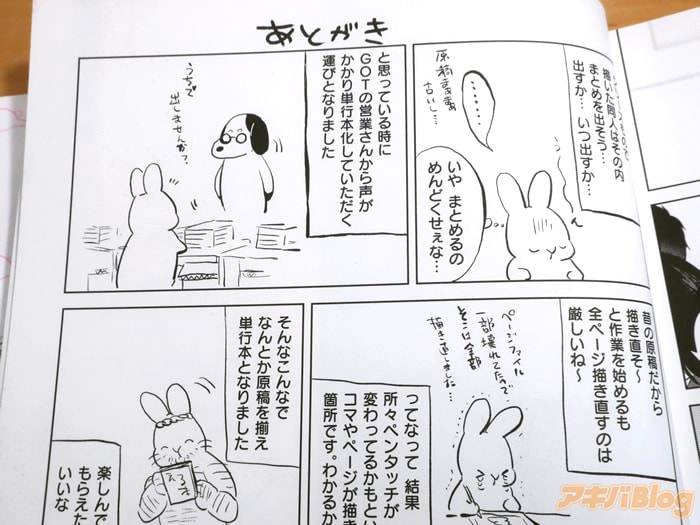 あとがき
描いた同人はその内
まとめを出そう…
出すか… いつ出すか…
原稿まぁまぁ
古いし…
………
いや まとめるの
めんどくせぇな…
と思っている時に
GOTの営業さんから声が
かかり単行本化していただく
運びとなりました
うちで
出しませんか?
昔の原稿だから
描き直そ~
と作業を始めるも
全ページ描き直すのは
厳しいね~
ページファイル
一部壊れてたので
そこは全部
描き直しました…
ってなって 結果
所々ペンタッチが
変わってるかもとい
コマやページが描き
箇所です。わかるか
そんなこんなで
なんとか原稿を揃え
単行本となりました
楽しんで
もらえた
いいな
アキバBlog